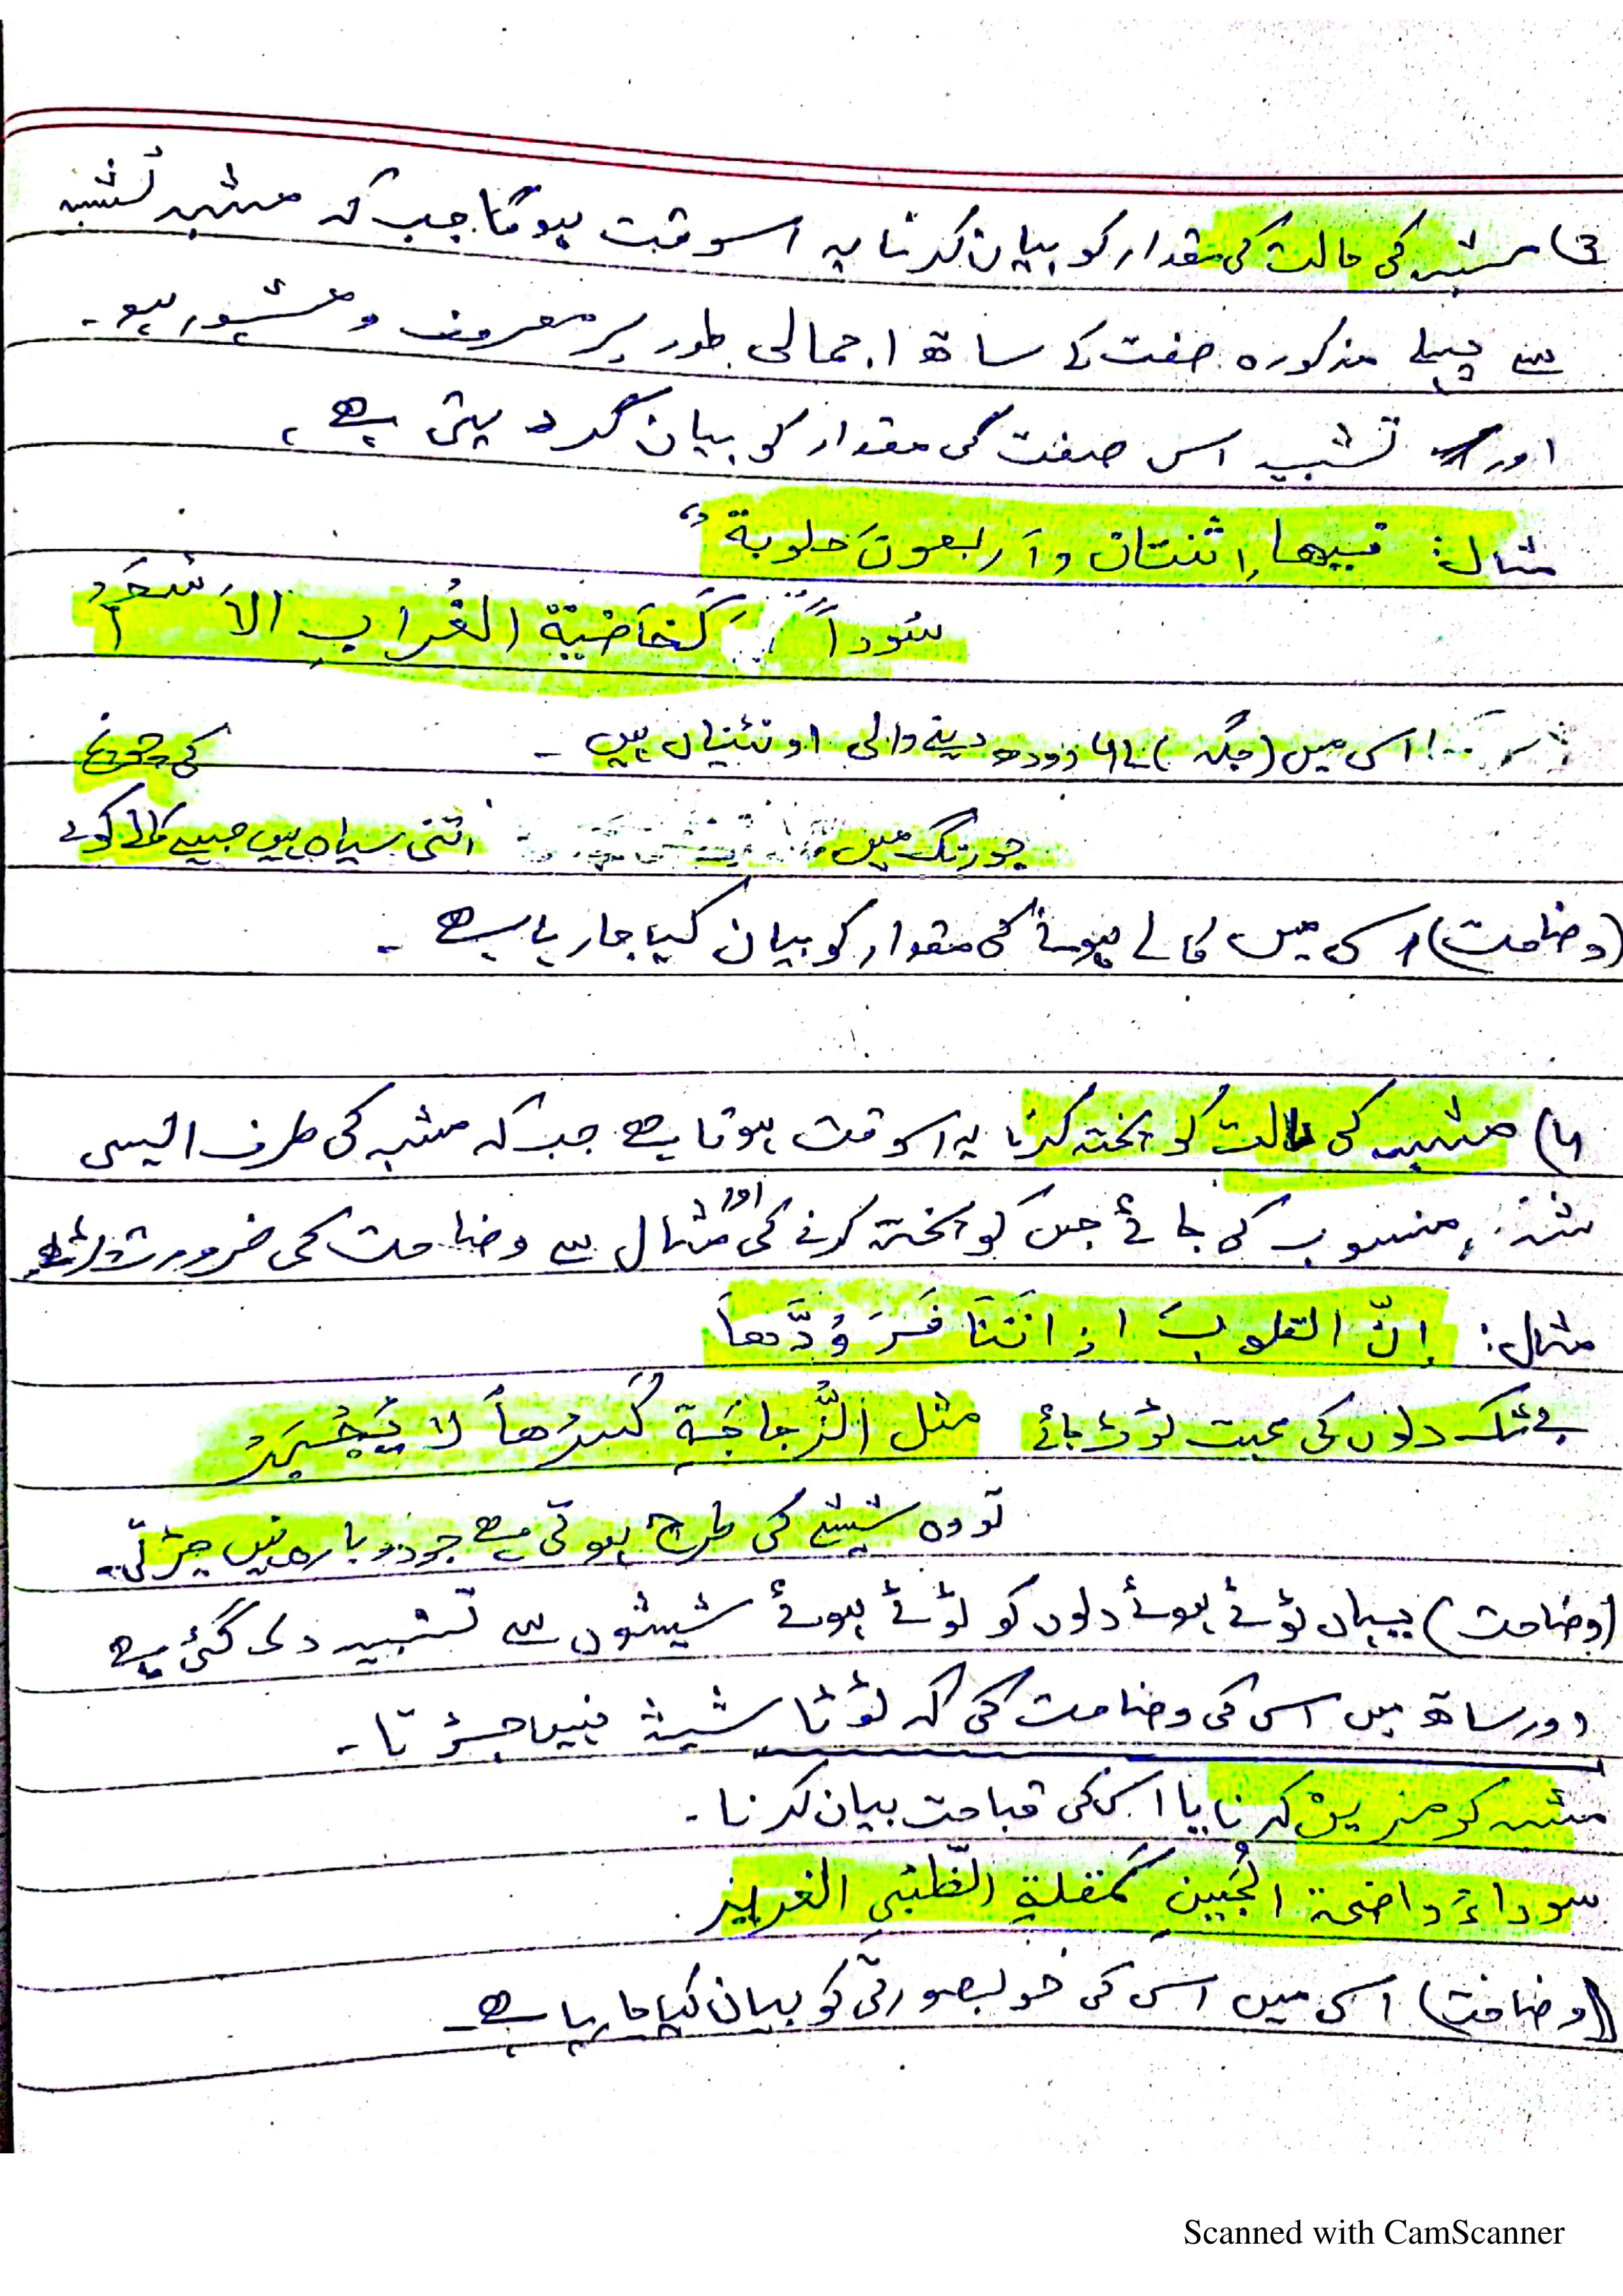 3) مشبہ کی حالت کی مقدار کو بیان کرنا یہ اسوقت ہوگا جب کہ مشبہ تشبیہ
سے پہلے مذکورہ صفت کے ساتھ اجمالی طور پر معروف و مشہور ہو۔
اور تشبیہ اس صفت کی مقدار کو بیان کر دیتی ہے،
مثال: فیہا اثنتان وأربعونَ حلوبةً
سُوداً كَخَافِيَةِ الغُرابِ الأسْحَمِ
اس میں (جگہ) 42 دودھ دینے والی اونٹنیاں ہیں۔
کی چونچ
جو رنگ میں اتنی سیاہ ہیں جیسے کالے کوے
(وضاحت) اس میں کالے ہونے کی مقدار کو بیان کیا جا رہا ہے۔
4) مشبہ کی حالت کو پختہ کرنا یہ اسوقت ہوتا ہے جب کہ مشبہ کی طرف ایسی
منسوب کی جائے جس کو پختہ کرنے کی اور مثال سے وضاحت کی ضرورت
مثال: إنّ القلوبَ اذا تَنَافَرَ وُدَّها
مثل الزُّجاجَةِ كَسرُها لا يُجْبَرُ
بے شک دلوں کی محبت ٹوٹ جائے
تو وہ شیشے کی طرح ہوتی ہے جو دوبارہ نہیں جڑتی۔
(وضاحت) یہاں ٹوٹے ہوئے دلوں کو ٹوٹے ہوئے شیشوں سے تشبیہ دی گئی ہے
اور ساتھ میں اس کی وضاحت کی کہ ٹوٹا شیشہ نہیں جڑتا۔
مشبہ کو مزین کرنا یا اس کی قباحت بیان کرنا۔
سوداءُ واضحة الجَبِينِ كَمُقلةِ الظَّبْيِ الغرير
(وضاحت) اس میں اس کی خوبصورتی کو بیان کیا جا رہا ہے۔
Scanned with CamScanner